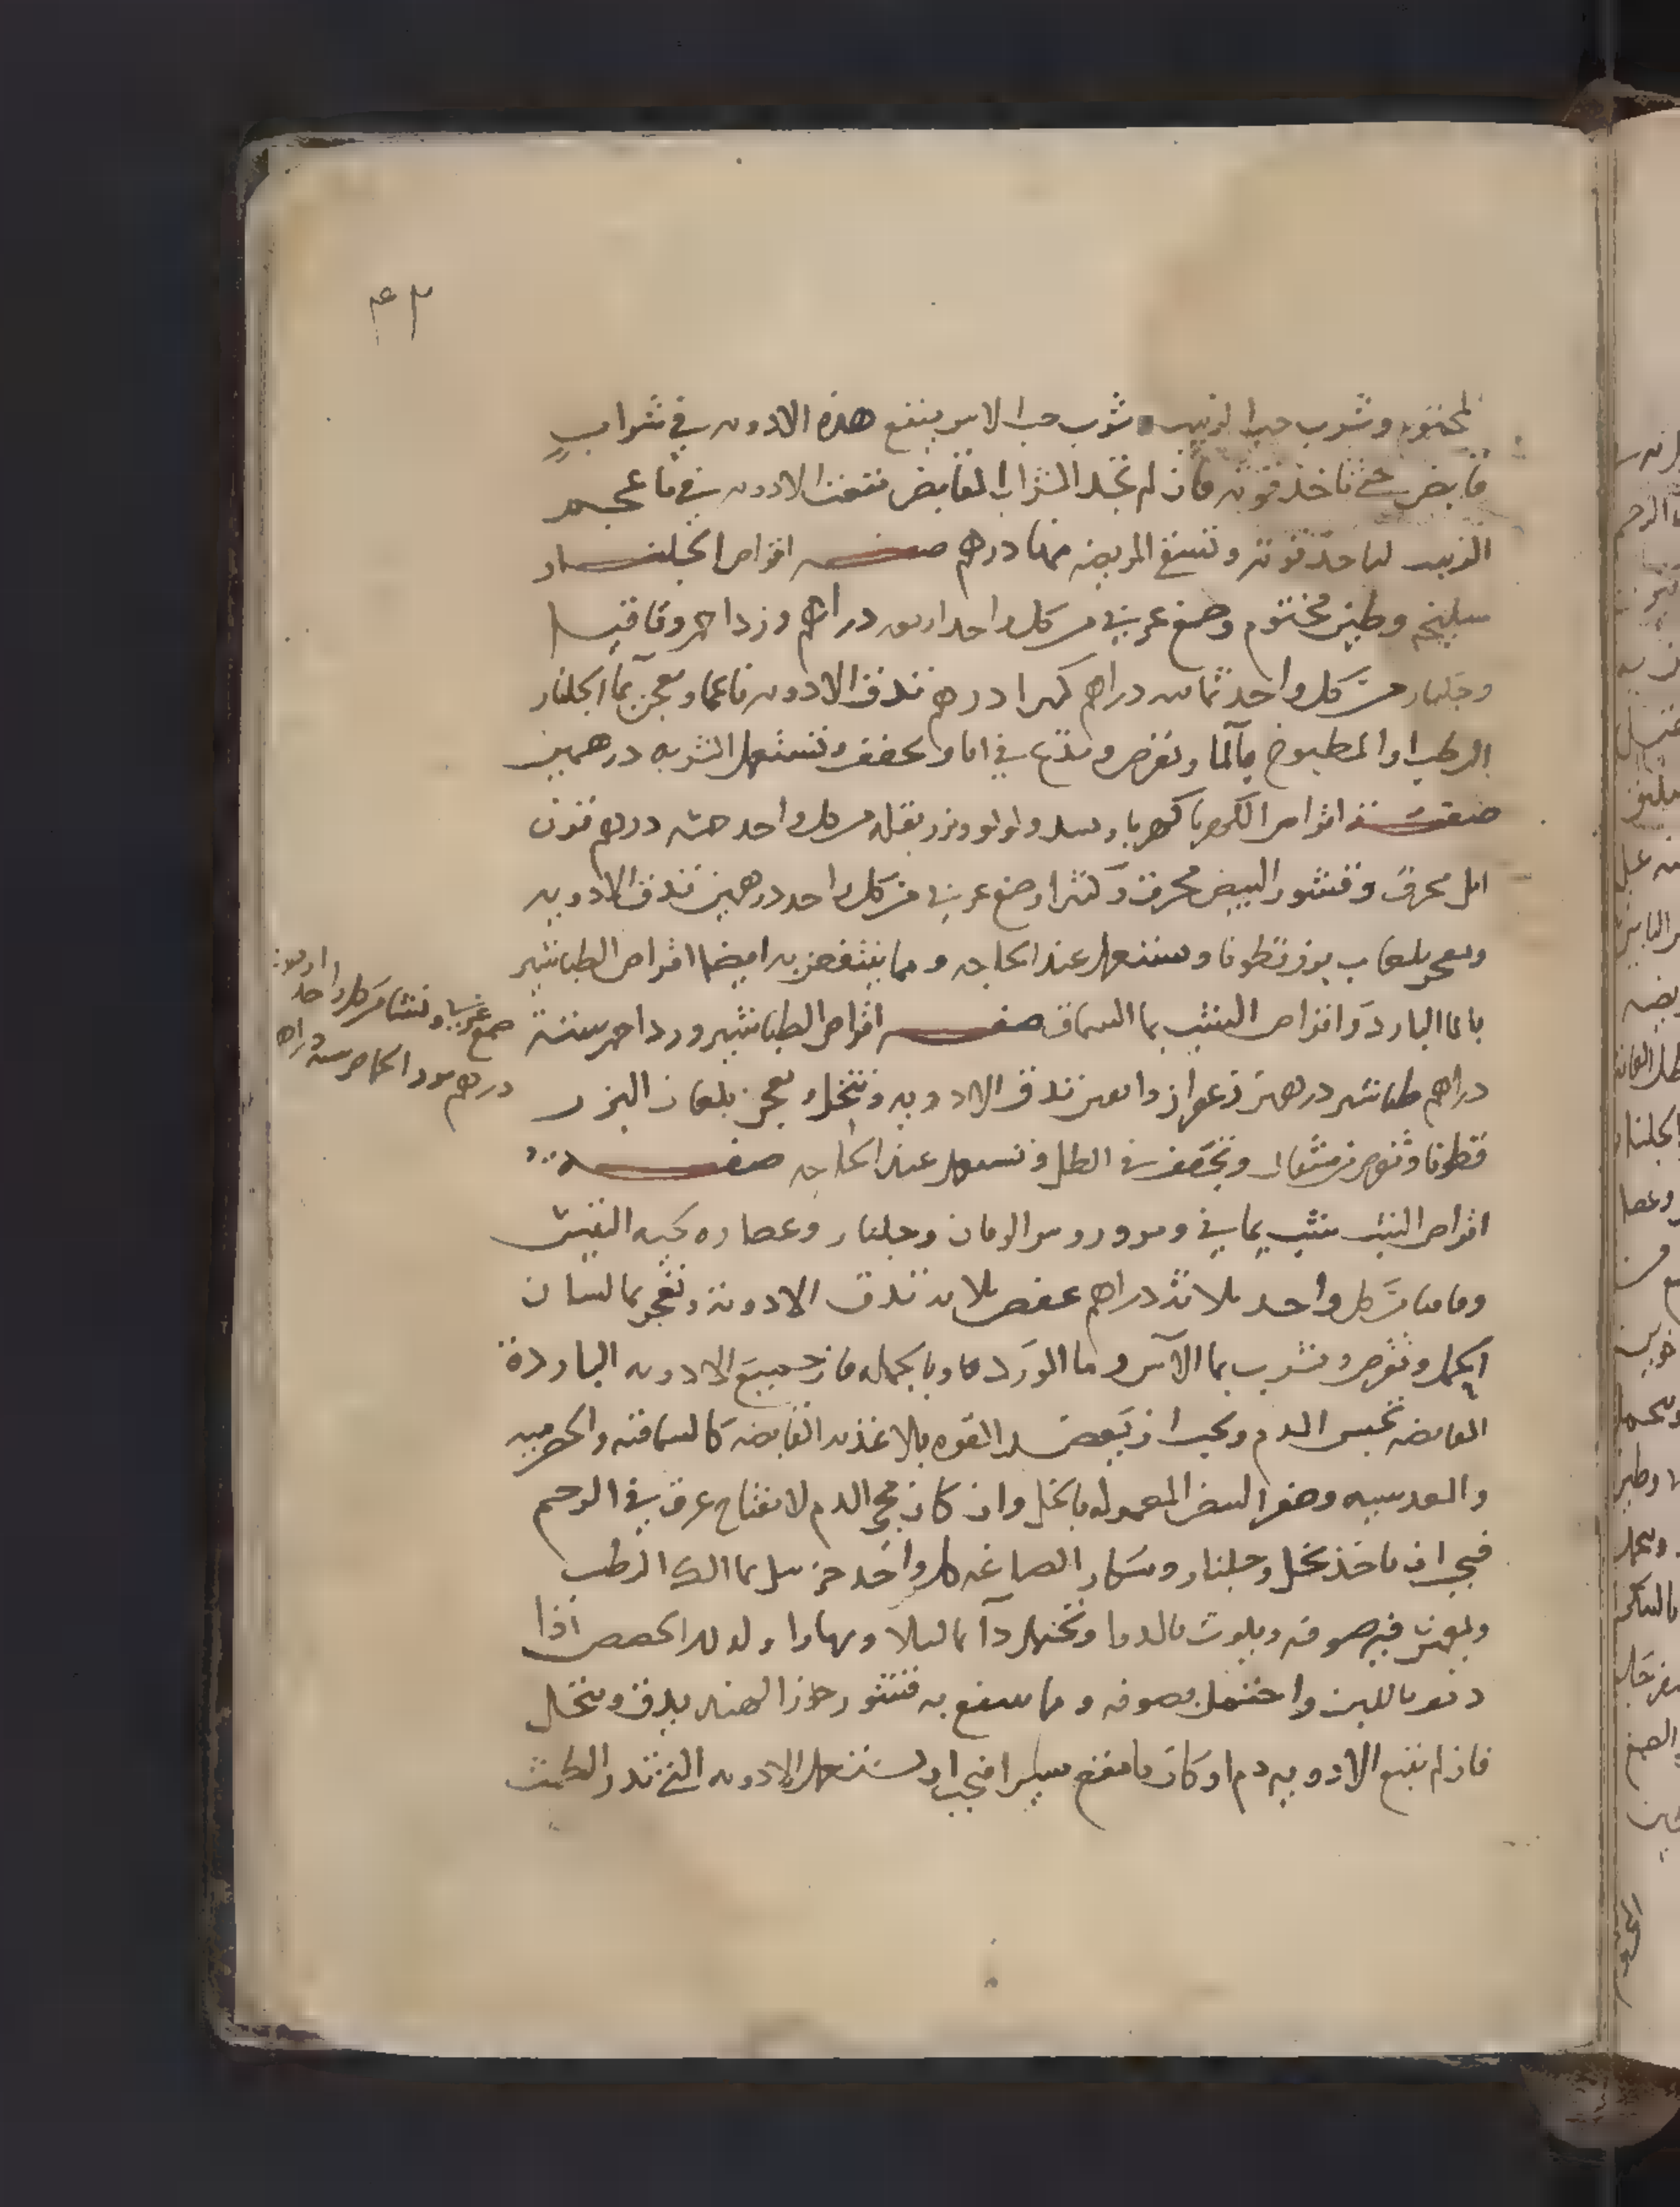 ٤٣
المختوم وشرب حب الزبيب وشرب حب الاس ينقع هذه الادويه في شراب
قابض حتى تاخذ قوته فان لم تجد الشراب القابض فتنقعت الادويه في ما عجم
الزبيب لتاخذ قوته وتسقى المريضه منها درهم صفه اقراص الجلنار
سليخه وطين مختوم وصمغ عربي من كل واحد اربعه دراهم ورد احمر وقاقيا
وجلنار من كل واحد ثمانيه دراهم كهربا درهم تدق الادويه ناعما وتعجن بما الجلنار
الرطب او المطبوخ بالما وتقرص وتدع في انا وتجفف وتستعمل الشربه درهمين
صفة اقراص الكهربا كهربا وبسد ولولو وبزر بقله من كل واحد خمسه دراهم قرن
ايل محرق وقشور البيض محرق وكثيرا وصمغ عربي من كل واحد درهمين تدق الادويه
وتعجن بلعاب بزر قطونا وتستعمل عند الحاجه ومما ينتفعن به ايضا اقراص الطباشير
بالما البارد واقراص الشب بما السماق صفه اقراص الطباشير ورد احمر ستة
صمغ عربي ونشا من كل واحد اربعه
درهم بزر الحماض سته دراهم
دراهم طباشير درهمين زعفران دانقين تدق الادويه وتنخل وتعجن بلعاب البزر
قطونا وتقرص من مثقال وتجفف في الظل وتستعمل عند الحاجه صفه
اقراص الشب شب يماني وبزر ورد وبزر الرمان وجلنار وعصاره لحيه التيس
وقاقيا من كل واحد ثلاثة دراهم عفص ثلاثه تدق الادوية وتعجن بما لسان
الحمل وتقرص وتشرب بما الآس وما الورد وبالجمله فان جميع الادويه الباردة
القابضه تحبس الدم ويجب ان القوه بالاغذيه القابضه كالسماقيه والحصرميه
والعدسيه وصفر البيض المعموله بالخل وان كان مجي الدم لانفتاح عرق في الرحم
فيجب ان تاخذ وجلنار الصاغه كل واحد جز بما الرطب
ويغمس فيه صوفه ويلوث بالدوا وتحتمل دائما ليلا ونهارا وكذلك الحضض اذا
ديف باللبن واحتمل بصوفه ومما ينتفع به قشور جوز الهند يدق وينخل
فان لم تنفع الادويه دم او كان ما تنفع يسيرا فيجب ان تستعمل الادويه التي تدر الطمث